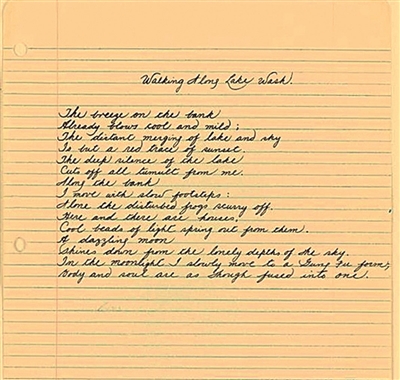 Walking Along Lake Wash.
The breeze on the bank
Already blows cool and mild;
The distant merging of lake and sky
Is but a red trace of sunset.
The deep silence of the lake
Cuts off all tumult from me.
Along the bank
I move with slow footsteps:
Alone the disturbed frogs scurry off.
Here and there are houses,
Cool beads of light spring out from them.
A dazzling moon
Shines down from the lonely depths of the sky.
In the moonlight I slowly move to a Gung Fu form,
Body and soul are as though fused into one.